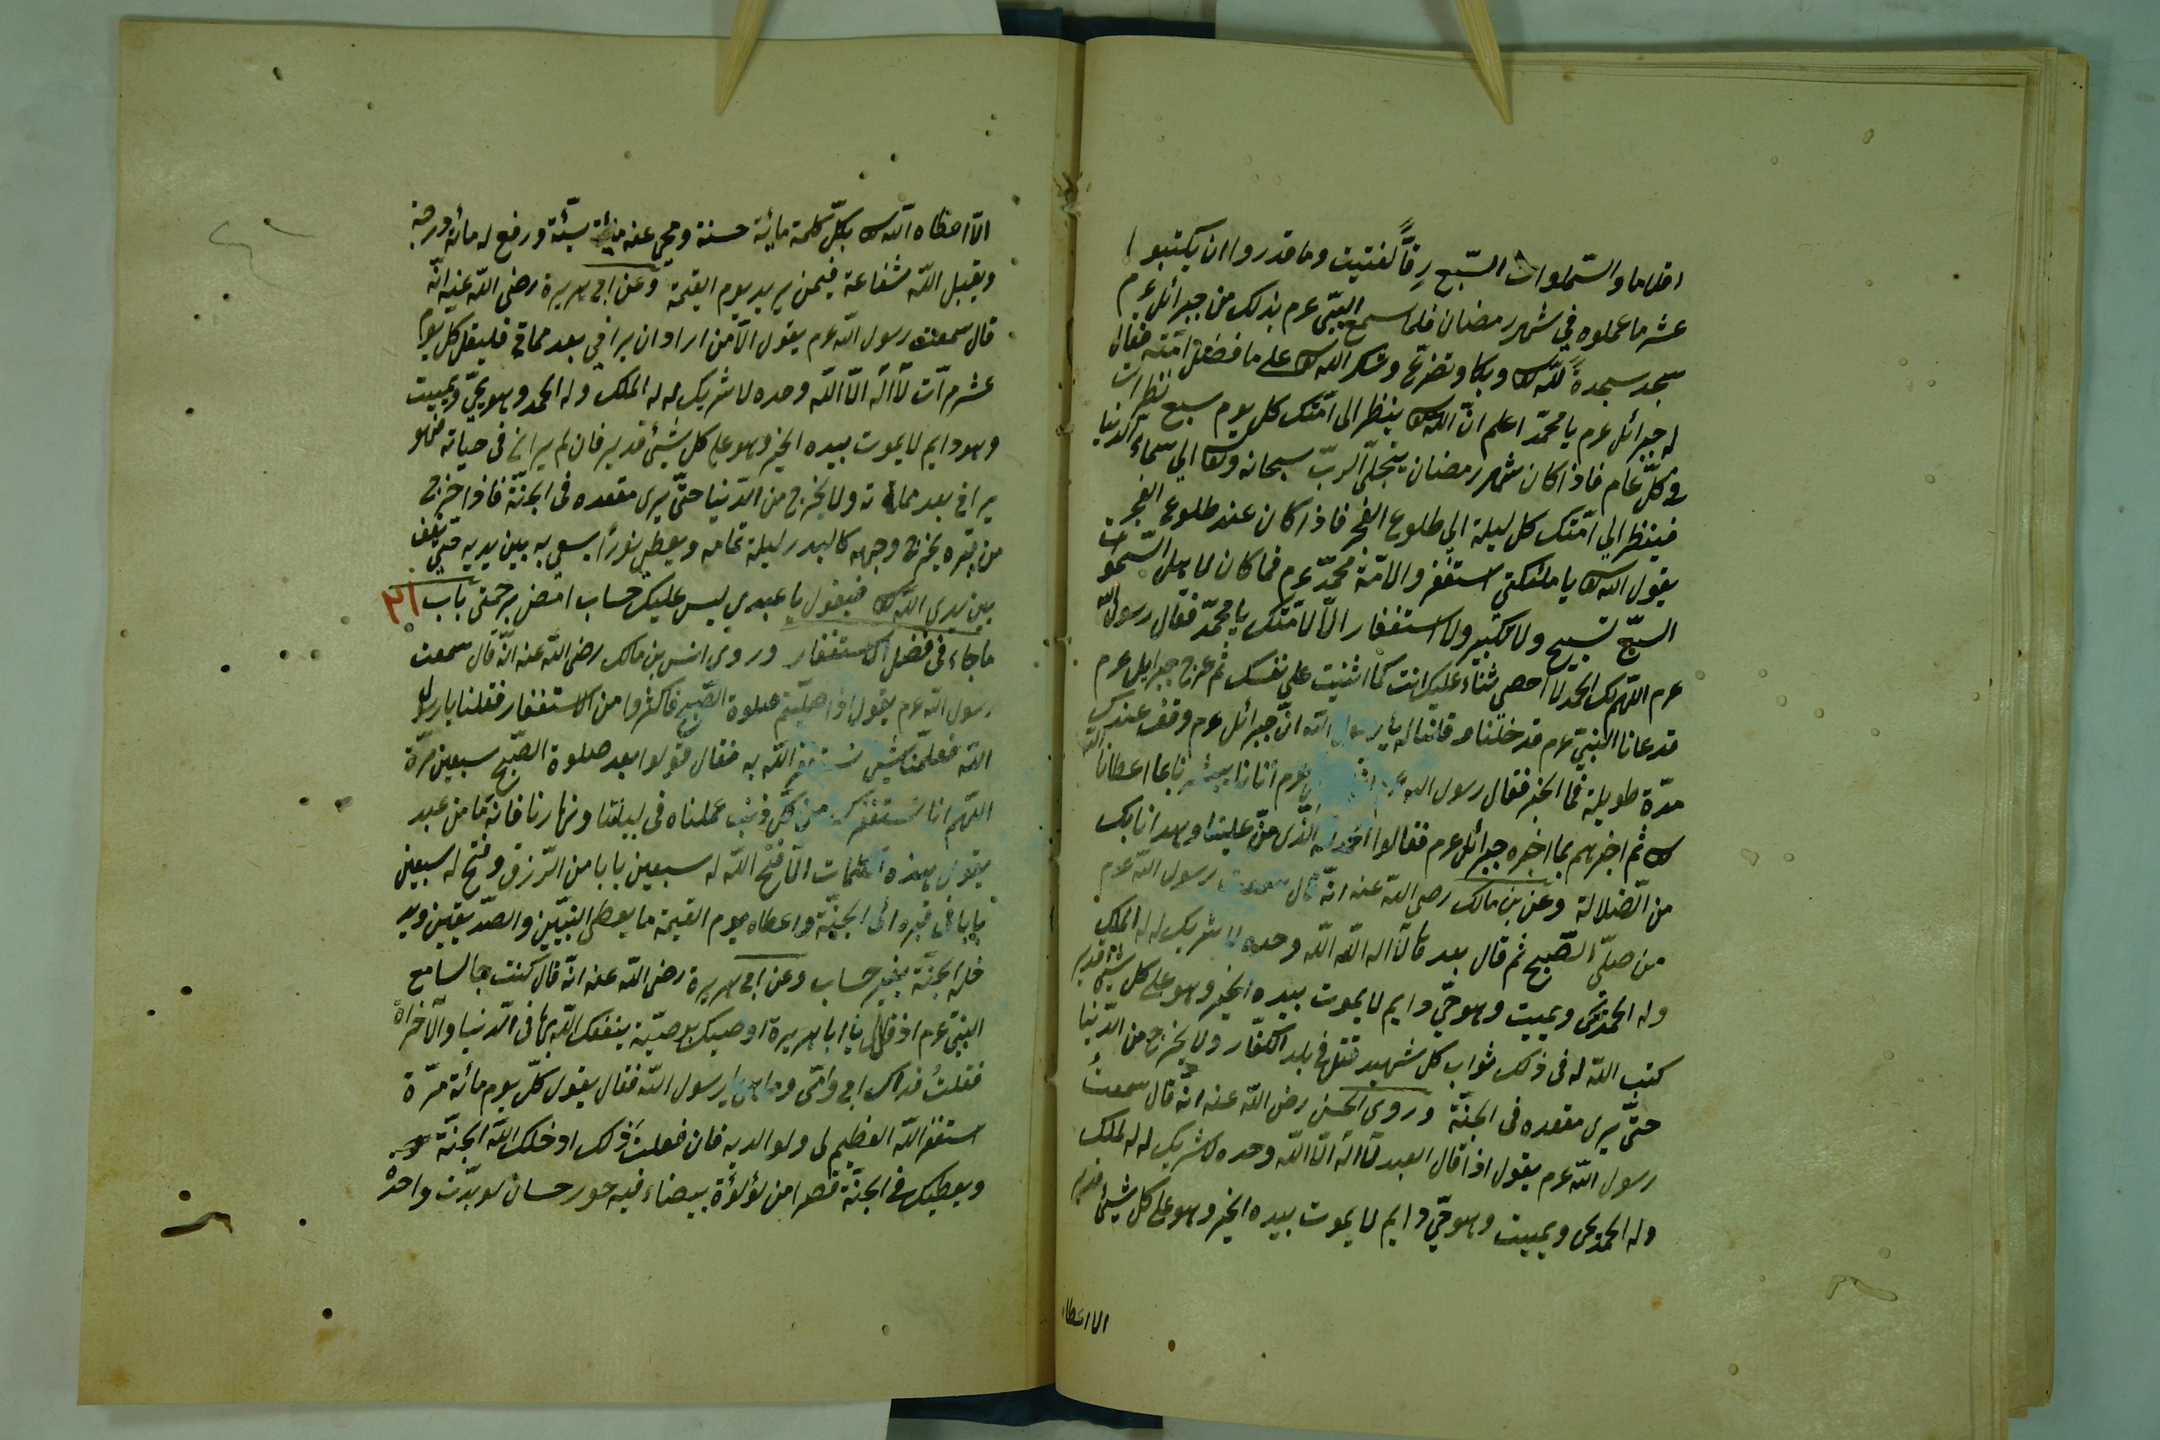 اقلاما والسّماوات السّبع رِقًّا لفنيت وما قدروا ان يكتبوا
عشر ما عملوه في شهر رمضان فلما سمع النبّى عرم بذلك من جبرائل عرم
سجد سجدةً للّه وبكا وتضرّع وشكر الله على ما فضّل امّته فقال
له جبرائل عرم يا محمّد اعلم انّ الله ينظر الى امّتك كل يوم سبع نظرات
فى كلّ عام فاذا كان شهر رمضان يتجلّى الربّ سبحانه الى سماء الدنيا
فينظر الى امّتك كل ليلة الى طلوع الفجر فاذا كان عند طلوع الفجر
يقول الله يا ملئكتى استغفروا لامّة محمّد عرم فما كان لاهل السّموات
السبّع تسبيح ولا تكبير ولا استغفار الّا لامّتك يا محمّد فقال رسول اللّه
عرم اللّهم لك الحمد لا احصى ثناء عليك انت كما اثنيت على نفسك ثم عرج جبرايل عرم
قد عانا النبىّ عرم قد خلنا وقلنا له يا رسول اللّه انّ جبرائل عرم وقف عندك
مدّة طويلة فما الخبر فقال رسول الله عرم اتانا يبشرنا بما اعطانا اللّه
ثم اخبرهم بما اخبره جبرائل عرم فقالوا الحمد لله الّذى منّ علينا وهدانا بك
من الضّلالة وعن بن مالك رضى اللّه عنه انّه قال سمعت رسول اللّه عرم
من صلّى الصّبح ثم قال بعدها لا اله الّا اللّه وحده لا شريك له له الملك
وله الحمد يحى ويميت وهو حىّ دايم لا يموت بيده الخير وهو على كل شئ قدير
كتب اللّه له فى ذلك ثواب كل شهيد قتل فى بلد الكفّار ولا يخرج من الدّنيا
حتّى يرى مقعده فى الجنّة وروى الحسن رضى اللّه عنه انّه قال سمعتُ
رسول اللّه عرم يقول اذا قال العبد لا اله الّا اللّه وحده لا شريك له له الملك
وله الحمد يحى ويميت وهو حىّ دايم لا يموت بيده الخير وهو على كل شيئ قدير
الا اعطاه
الّا اعطاه اللّه بكلّ كلمة مايئة حسنة ومحى عنه مائة سيّئة ورفع له مائة درجة
ويقبل اللّه شفاعة فيمن يريد يوم القيمة وعن ابى هريرة رضى اللّه عنه انّه
قال سمعت رسول اللّه عرم يقول الّا من اراد ان يرانى بعد مماتى فليقل كل يوم
عشر مرّات لا اله الّا اللّه وحده لا شريك له له الملك وله الحمد وهو يحىّ ويميت
وهو دايم لا يموت بيده الخير وهو على كل شيئ قدير فان لم يرانى فى حياته فهو
يرانى بعد مماته ولا يخرج من الدّنيا حتّى يرى مقعده فى الجنّة فاذا خرج
من قبره يخرج وجهه كالبدر ليلة تمامه ويعطى نورًا يسعى به بين يديه حتّى يقف
بين يدى اللّه فيقول يا عبدى ليس عليك حساب امض برحمتى باب ٣١
ما جاء فى فضل الاستغفار وروى انس بن مالك رضى اللّه عنه انّه قال سمعت
رسول اللّه عرم يقول اذا صلّيتم صلوة الصّبح فاكثروا من الاستغفار فقلنا يا رسول
اللّه فعلّمنا شئ نستغفر اللّه به فقال قولوا بعد صلوة الصّبح سبعين مرّة
اللّهم انا نستغفرك من كلّ ذنب عملناه فى ليلتنا ونهارنا فانه ما من عبد
يقول هذه الكلمات الّا فتح اللّه له سبعين بابا من الرّزق وفتح له سبعين
بابا فى قبره الى الجنّة واعطاه يوم القيمة ما يعطى النبيّين والصّديقين ويد
خله الجنّة بغير حساب وعن ابى هريرة رضى اللّه عنه انّه قال كنت جالسا مع
النبىّ عرم اذ قال يا ابا هريرة اوصيك بوصيّة ينفعك اللّه بها فى الدّنيا والآخراة
فقلتُ فداك ابى وامّى وما هى يا رسول اللّه فقال يقول كلّ يوم مائة مرّة
استغفر اللّه العظيم لى ولوالديه فان فعلتَ ذلك ادخلك اللّه الجنّة
ويعطيك فى الجنّة قصرا من لؤلؤة بيضاء فيه حور حسان لو بدّت واحدة